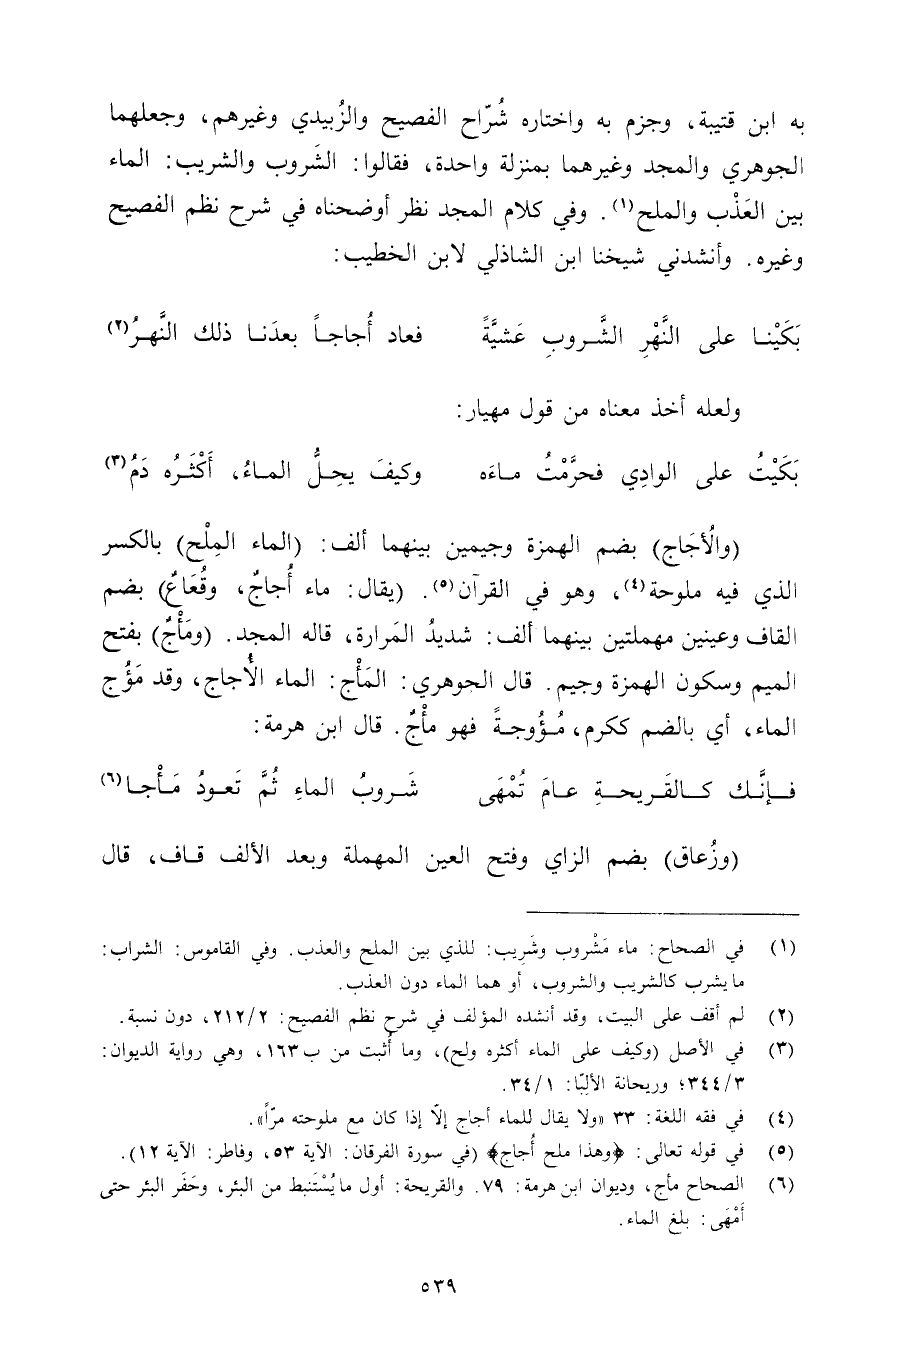 به ابن قتيبة، وجزم به واختاره شُرّاح الفصيح والزُبيدي وغيرهم، وجعلهما
الجوهري والمجد وغيرهما بمنزلة واحدة، فقالوا: الشَروب والشريب: الماء
بين العَذْب والملح(١). وفي كلام المجد نظر أوضحناه في شرح نظم الفصيح
وغيره. وأنشدني شيخنا ابن الشاذلي لابن الخطيب:
بَكَيْنـا على النَّهْرِ الشَّـروبِ عَشيَّةً فعاد أُجاجـاً بعدَنـا ذلك النَّهـرُ(٢)
ولعله أخذ معناه من قول مهيار:
بَكَيْتُ على الوادِي فحرَّمْتُ مـاءَه وكيفَ يحِـلُّ المـاءُ، أَكْثَـرُه دَمُ(٣)
(والُأجَاج) بضم الهمزة وجيمين بينهما ألف: (الماء المِلْح) بالكسر
الذي فيه ملوحة(٤)، وهو في القرآن(٥). (يقال: ماء أُجاجٌ، وقُعَاعٌ) بضم
القاف وعينين مهملتين بينهما ألف: شديدُ المَرارة، قاله المجد. (ومَأْجٌ) بفتح
الميم وسكون الهمزة وجيم. قال الجوهري: المَأْج: الماء الأُجاج، وقد مَؤُج
الماء، أي بالضم ككرم، مُـؤُوجـةً فهو مأْجٌ. قال ابن هرمة:
فـإنَّـك كـالقَـريحـةِ عـامَ تُمْهَى شَـروبُ الماءِ ثُمَّ تَعـودُ مَـأْجـا(٦)
(وزُعاق) بضم الزاي وفتح العين المهملة وبعد الألف قـاف، قال
(١) في الصحاح: ماء مَشْروب وشَريب: للذي بين الملح والعذب. وفي القاموس: الشراب:
ما يشرب كالشريب والشروب، أو هما الماء دون العذب.
(٢) لم أقف على البيت، وقد أنشده المؤلف في شرح نظم الفصيح: ٢١٢/٢، دون نسبة.
(٣) في الأصل (وكيف على الماء أكثره ولح)، وما أُثبت من ب١٦٣، وهي رواية الديوان:
٣٤٤/٣؛ وريحانة الألبّا: ٣٤/١.
(٤) في فقه اللغة: ٣٣ «ولا يقال للماء أجاج إلّا إذا كان مع ملوحته مرّاً».
(٥) في قوله تعالى: ﴿وهذا ملح أُجاج﴾ (في سورة الفرقان: الآية ٥٣، وفاطر: الآية ١٢).
(٦) الصحاح مأج، وديوان ابن هرمة: ٧٩. والقريحة: أول ما يُسْتَنبط من البئر، وحَفَر البئر حتى
أَمْهَى: بلغ الماء.
٥٣٩